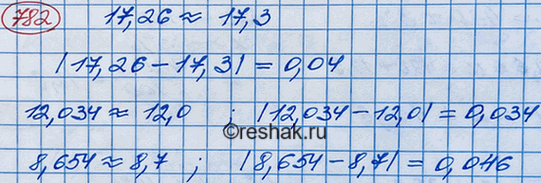 782 17,26 ≈ 17,3
|17,26 - 17,3| = 0,04
12,034 ≈ 12,0 ; |12,034 - 12,0| = 0,034
©reshak.ru
8,654 ≈ 8,7 ; |8,654 - 8,7| = 0,046